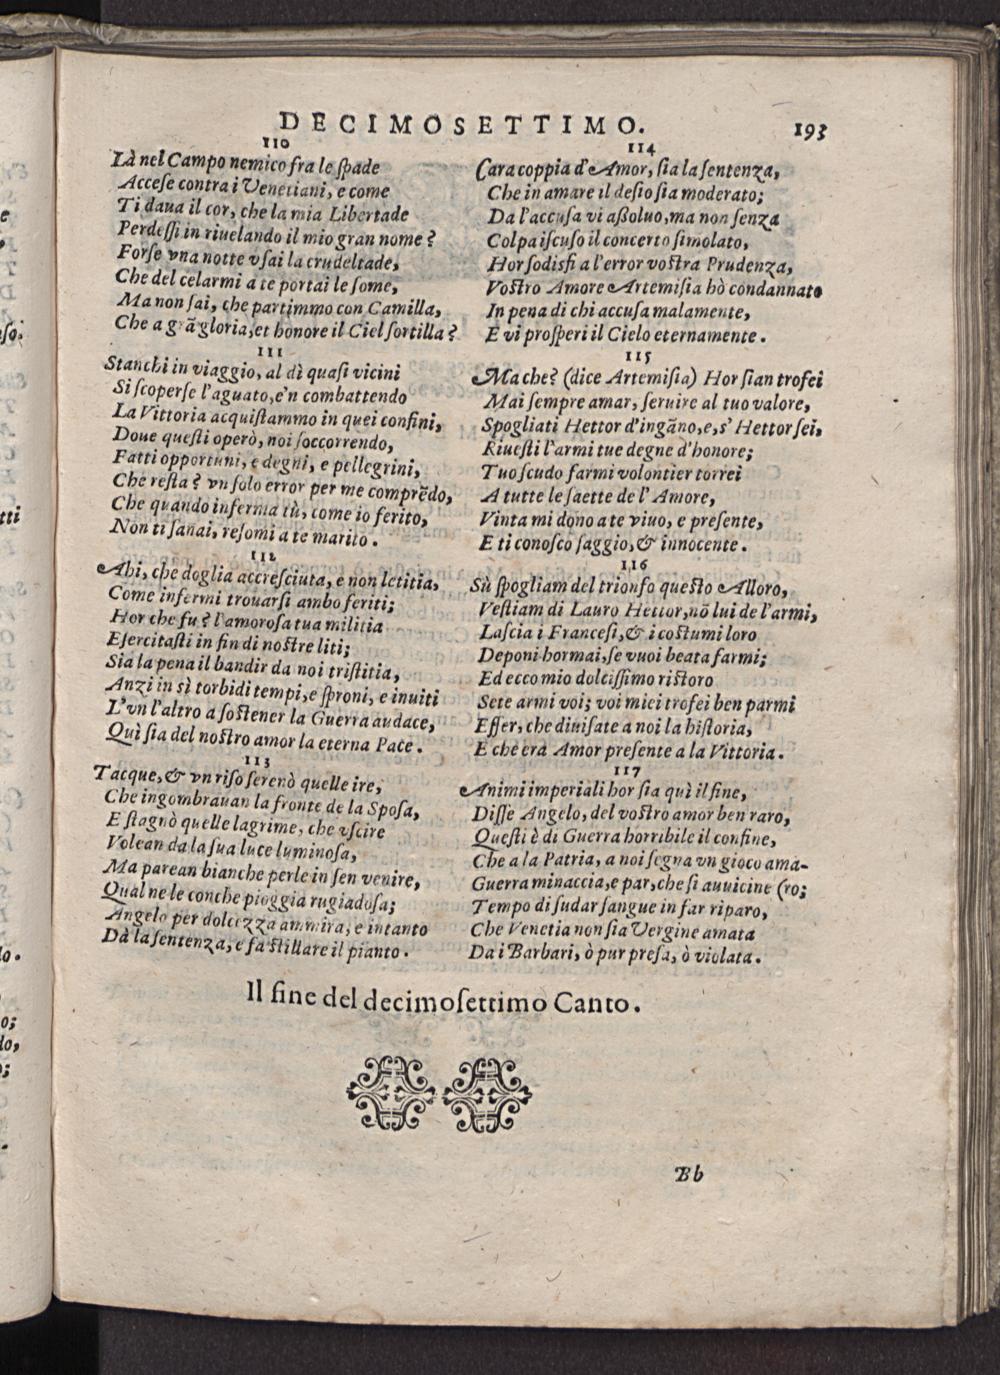 DECIMOSETTIMO. 193
110
Là nel Campo nemico fra le ſpade
Acceſe contra i Venetiani, e come
Ti daua il cor, che la mia Libertade
Perdeſſi in riuelando il mio gran nome?
Forſe vna notte vſai la crudeltade,
Che del celarmi a te portai le ſome,
Ma non ſai, che partimmo con Camilla,
Che a grã gloria, et honore il Ciel ſortilla?
111
Stanchi in viaggio, al dì quaſi vicini
Si ſcoperſe l'aguato, e'n combattendo
La Vittoria acquiſtammo in quei confini,
Doue queſti operò, noi ſoccorrendo,
Fatti opportuni, e degni, e pellegrini,
Che reſta? vn ſolo error per me comprẽdo,
Che quando inferma tù, come io ferito,
Non ti ſanai, reſomi a te marito.
112
Ahi, che doglia accreſciuta, e non letitia,
Come infermi trouarſi ambo feriti;
Hor che fu? l'amoroſa tua militia
Eſercitaſti in fin di noſtre liti;
Sia la pena il bandir da noi triſtitia,
Anzi in sì torbidi tempi, e ſproni, e inuiti
L'vn l'altro a ſoſtener la Guerra audace,
Quì ſia del noſtro amor la eterna Pace.
113
Tacque, & vn riſo ſerenò quelle ire,
Che ingombrauan la fronte de la Spoſa,
E ſtagnò quelle lagrime, che vſcire
Volean da la ſua luce luminoſa,
Ma parean bianche perle in ſen venire,
Qual ne le conche pioggia rugiadoſa;
Angelo per dolcezza ammira, e intanto
Dà la ſentenza, e fa ſtillare il pianto.
114
Cara coppia d'Amor, ſia la ſentenza,
Che in amare il deſio ſia moderato;
Da l'accuſa vi aßoluo, ma non ſenza
Colpa iſcuſo il concerto ſimolato,
Hor ſodisfi a l'error voſtra Prudenza,
Voſtro Amore Artemiſia hò condannato
In pena di chi accuſa malamente,
E vi proſperi il Cielo eternamente.
115
Ma che? (dice Artemiſia) Hor ſian trofei
Mai ſempre amar, ſeruire al tuo valore,
Spogliati Hettor d'ingãno, e, s'Hettor ſei,
Riueſti l'armi tue degne d'honore;
Tuo ſcudo farmi volontier torrei
A tutte le ſaette de l'Amore,
Vinta mi dono a te viuo, e preſente,
E ti conoſco ſaggio, & innocente.
116
Sù ſpogliam del trionfo queſto Alloro,
Veſtiam di Lauro Hettor, nõ lui de l'armi,
Laſcia i Franceſi, & i coſtumi loro
Deponi hormai, ſe vuoi beata farmi;
Ed ecco mio dolciſſimo riſtoro
Sete armi voi; voi miei trofei ben parmi
Eſſer, che diuiſate a noi la hiſtoria,
E che era Amor preſente a la Vittoria.
117
Animi imperiali hor ſia quì il fine,
Diſſe Angelo, del voſtro amor ben raro,
Queſti è di Guerra horribile il confine,
Che a la Patria, a noi ſegna vn gioco ama-
Guerra minaccia, e par, che ſi auuicine (ro;
Tempo di ſudar ſangue in far riparo,
Che Venetia non ſia Vergine amata
Da i Barbari, ò pur preſa, ò violata.
Il fine del decimoſettimo Canto.
Bb